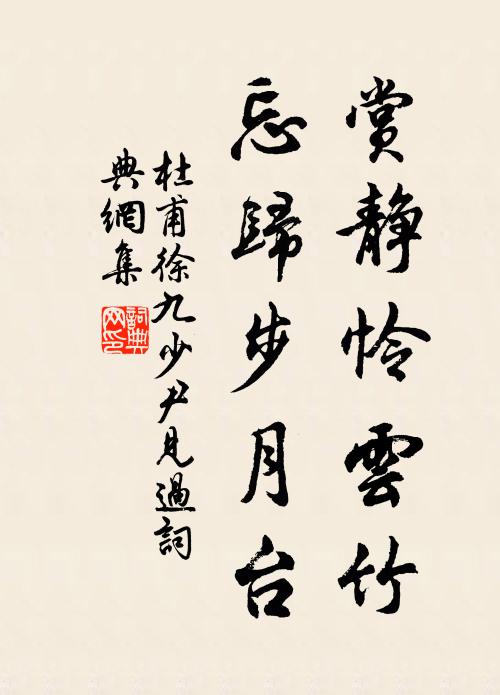 赏静怜雲竹
忘歸步月台
杜甫徐九少尹見過詞
典網集
詞典网印